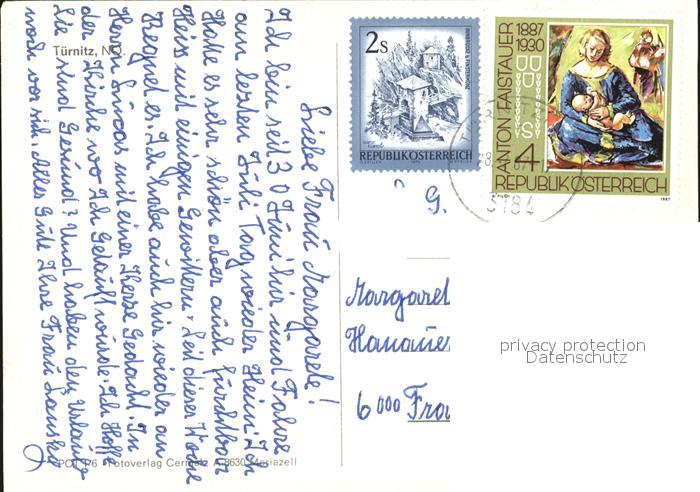 Türnitz, NÖ.
Liebe Frau Margarete!
Ich bin seit 30 Juni hir und Fahre
am lezten Juli Tag wieder Heim. Ich
Hatte es sehr schön aber auch fürchtbar
Heis mit einigen Gewittern. Seit dieser Woche
Regnet es. Ich habe auch hir wieder an
Herrn Lucas mit einer Kerze Gedacht. In
der Kirche wo Ich Getauft wurde. Ich Hoffe
Sie sind Gesund? Und haben den Urlaub
noch vor sich. Alles Gute Ihre Frau
POT 1/6 Fotoverlag A 8630 Mariazell
2s
REPUBLIK ÖSTERREICH
ANTON FAISTAUER 1887
1930
S 4
REPUBLIK ÖSTERREICH
1987
3184
G.
Margaret
Hanauer
6000 Fra
privacy protection
Datenschutz